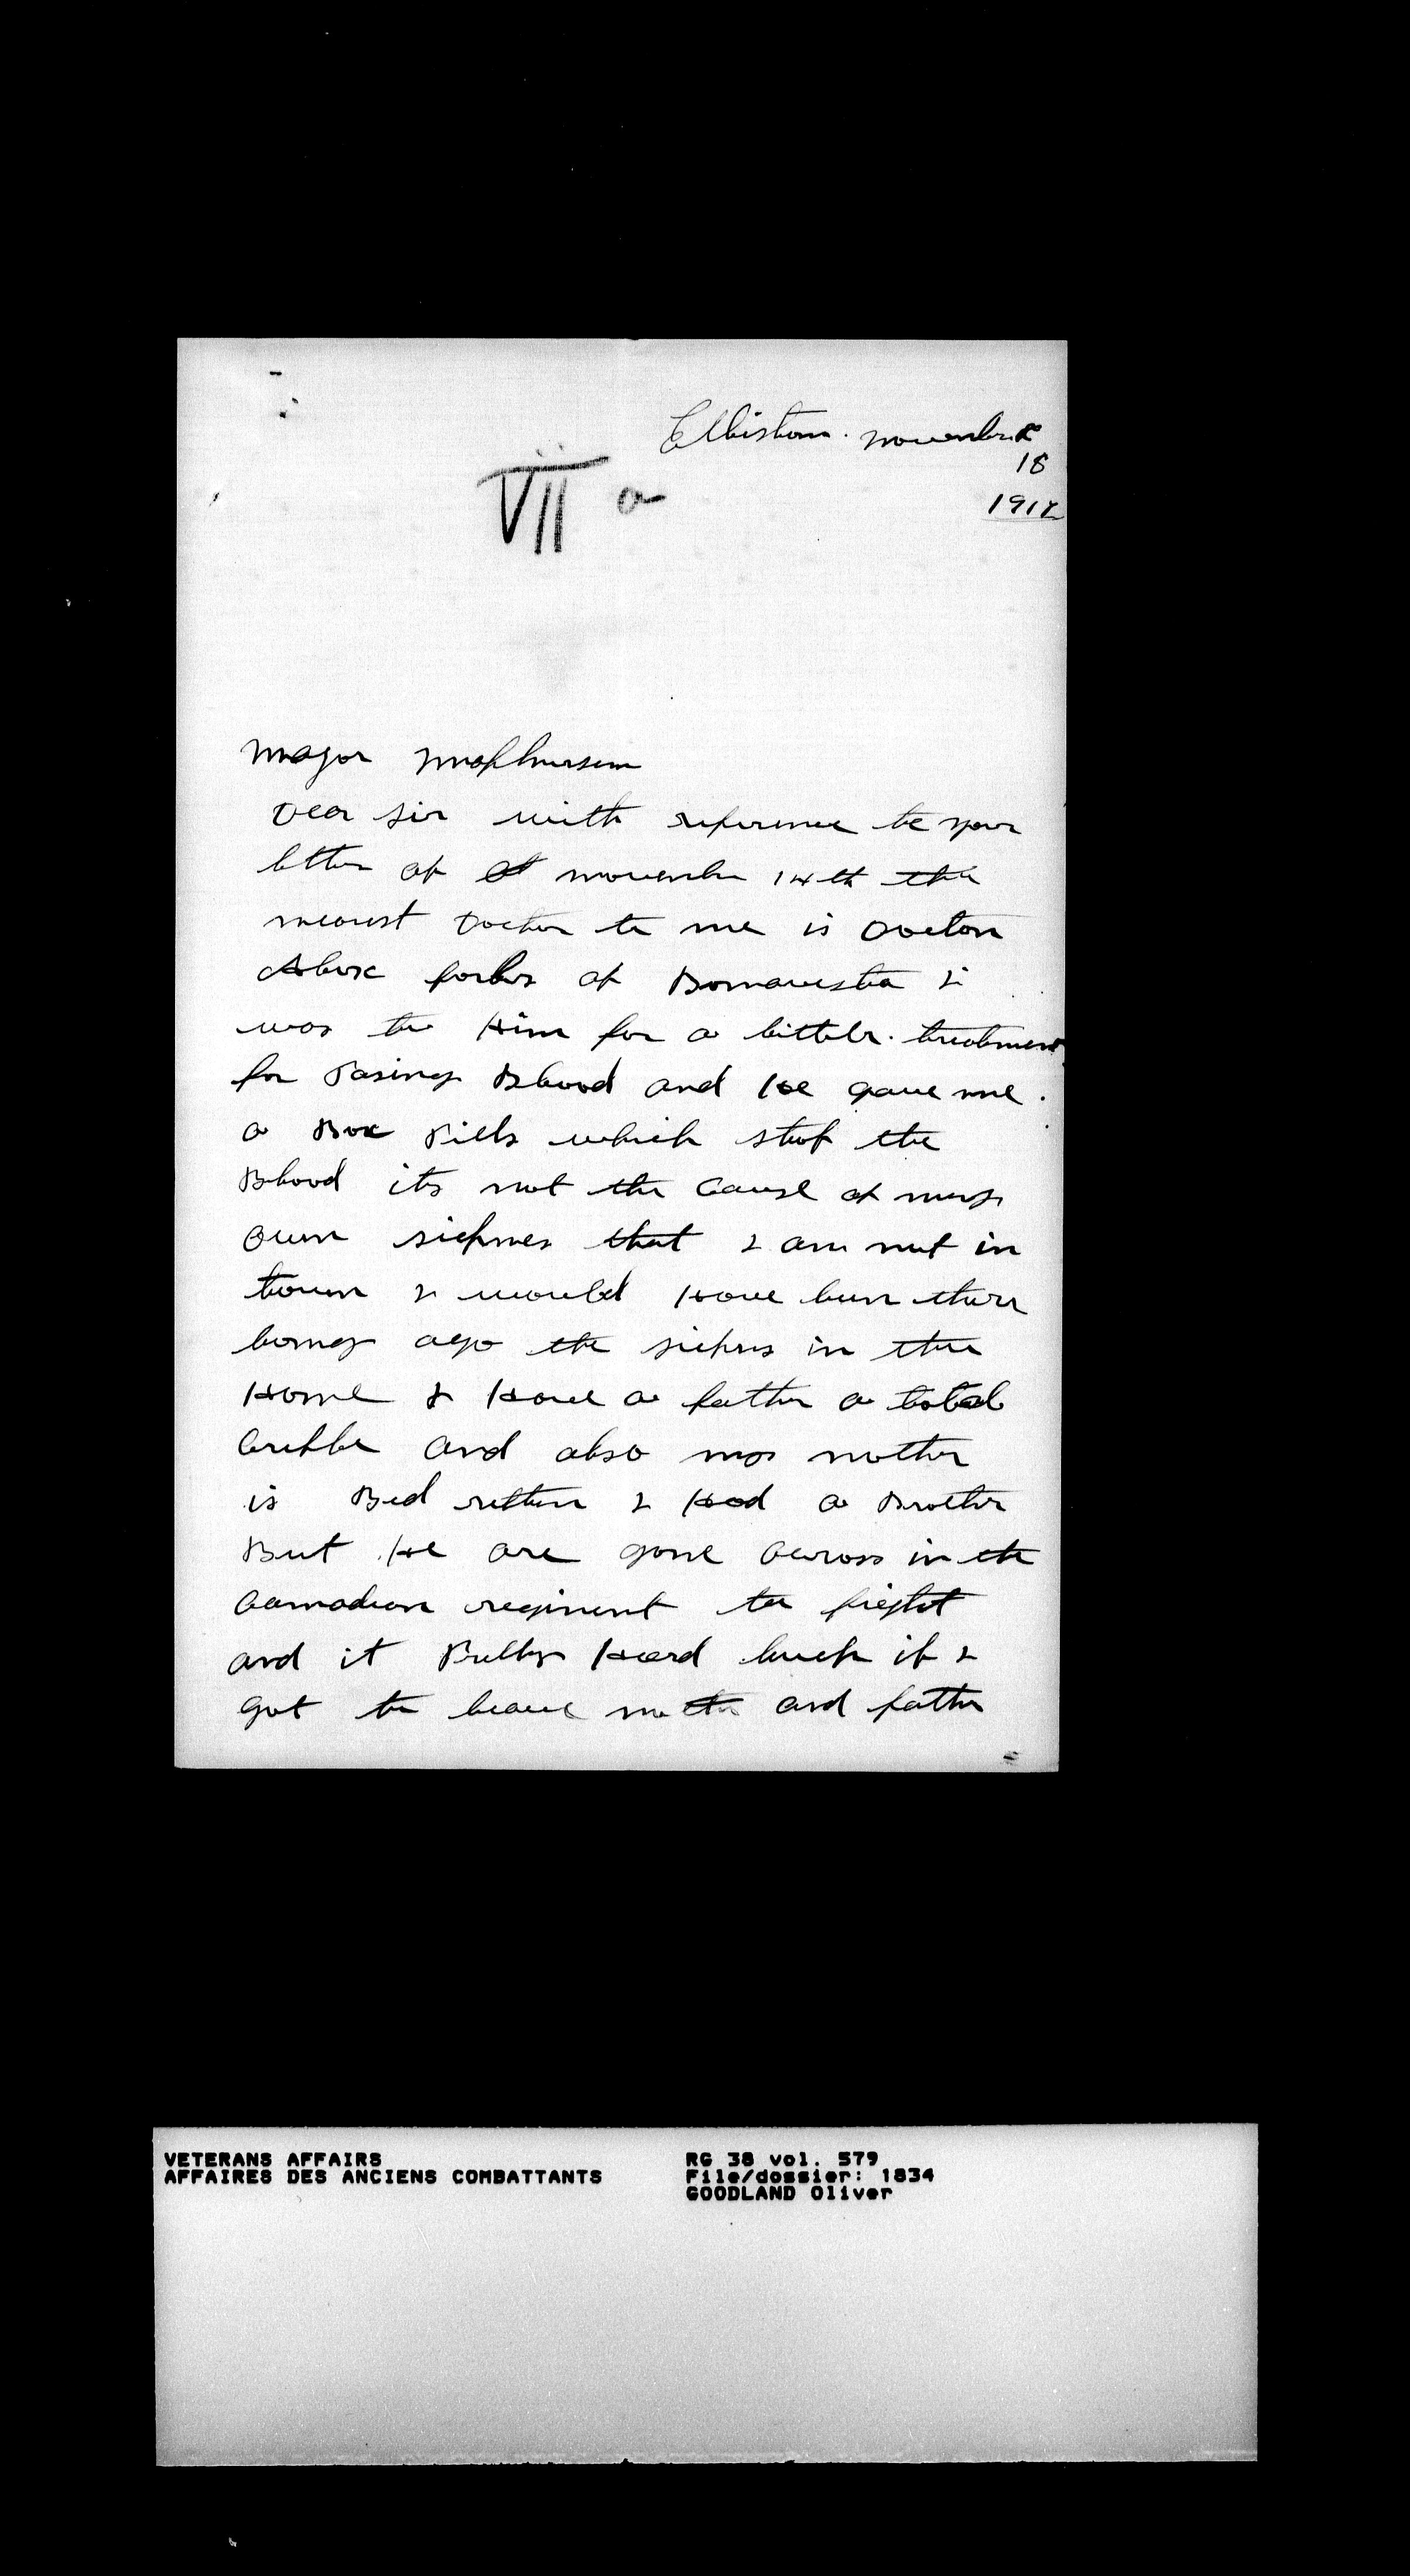 Elliston. november
18
1917
VII a
Major Macphurson
Dear Sir with referrence to your
letter of November 14th the
nearest Docter to me is Doctor
Alex forbes of Bonavista I
was to Him for a little. treatment
for Pasing Blood and He gave me.
a Box Pills which stop the
Blood its not the cause of my
own sickness that I am not in
town I would Have been there
long ago the sickness in the
Home I Have a father a total
criple and also my mother
is Bed ritten I Had a Brother
But He are gone across in the
canadian regiment to fight
and it Bully Hard luck if I
got to leave mother and father
VETERANS AFFAIRS
AFFAIRES DES ANCIENS COMBATTANTS
RG 38 vol. 579
File/dossier: 1834
GOODLAND Oliver